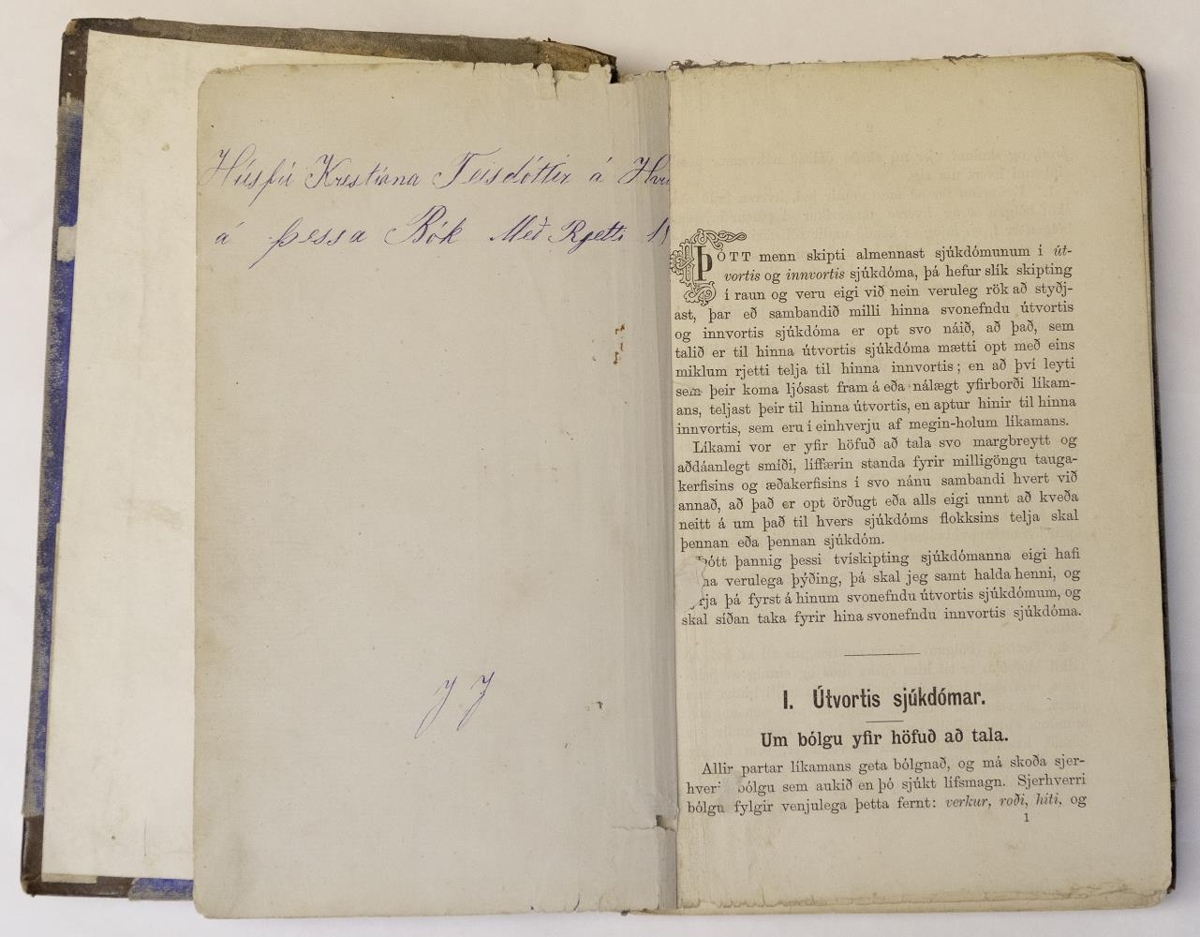 Húsfrú Kristíana Teisdóttir á
á þessa Bók Með Rjetti
J J
ÞÓTT menn skipti almennast sjúkdómunum í út-
vortis og innvortis sjúkdóma, þá hefur slík skipting
í raun og veru eigi við nein veruleg rök að styðj-
ast, þar eð sambandið milli hinna svonefndu útvortis
og innvortis sjúkdóma er opt svo náið, að það, sem
talið er til hinna útvortis sjúkdóma mætti opt með eins
miklum rjetti telja til hinna innvortis; en að því leyti
sem þeir koma ljósast fram á eða nálægt yfirborði líkam-
ans, teljast þeir til hinna útvortis, en aptur hinir til hinna
innvortis, sem eru í einhverju af megin-holum líkamans.
Líkami vor er yfir höfuð að tala svo margbreytt og
aðdáanlegt smíði, líffærin standa fyrir milligöngu tauga-
kerfisins og æðakerfisins í svo nánu sambandi hvert við
annað, að það er opt örðugt eða alls eigi unnt að kveða
neitt á um það til hvers sjúkdóms flokksins telja skal
þennan eða þennan sjúkdóm.
Þótt þannig þessi tvískipting sjúkdómanna eigi hafi
verulega þýðing, þá skal jeg samt halda henni, og
þá fyrst á hinum svonefndu útvortis sjúkdómum, og
skal síðan taka fyrir hina svonefndu innvortis sjúkdóma.
I. Útvortis sjúkdómar.
Um bólgu yfir höfuð að tala.
Allir partar líkamans geta bólgnað, og má skoða sjer-
hver bólgu sem aukið en þó sjúkt lífsmagn. Sjerhverri
bólgu fylgir venjulega þetta fernt: verkur, roði, hiti, og
1